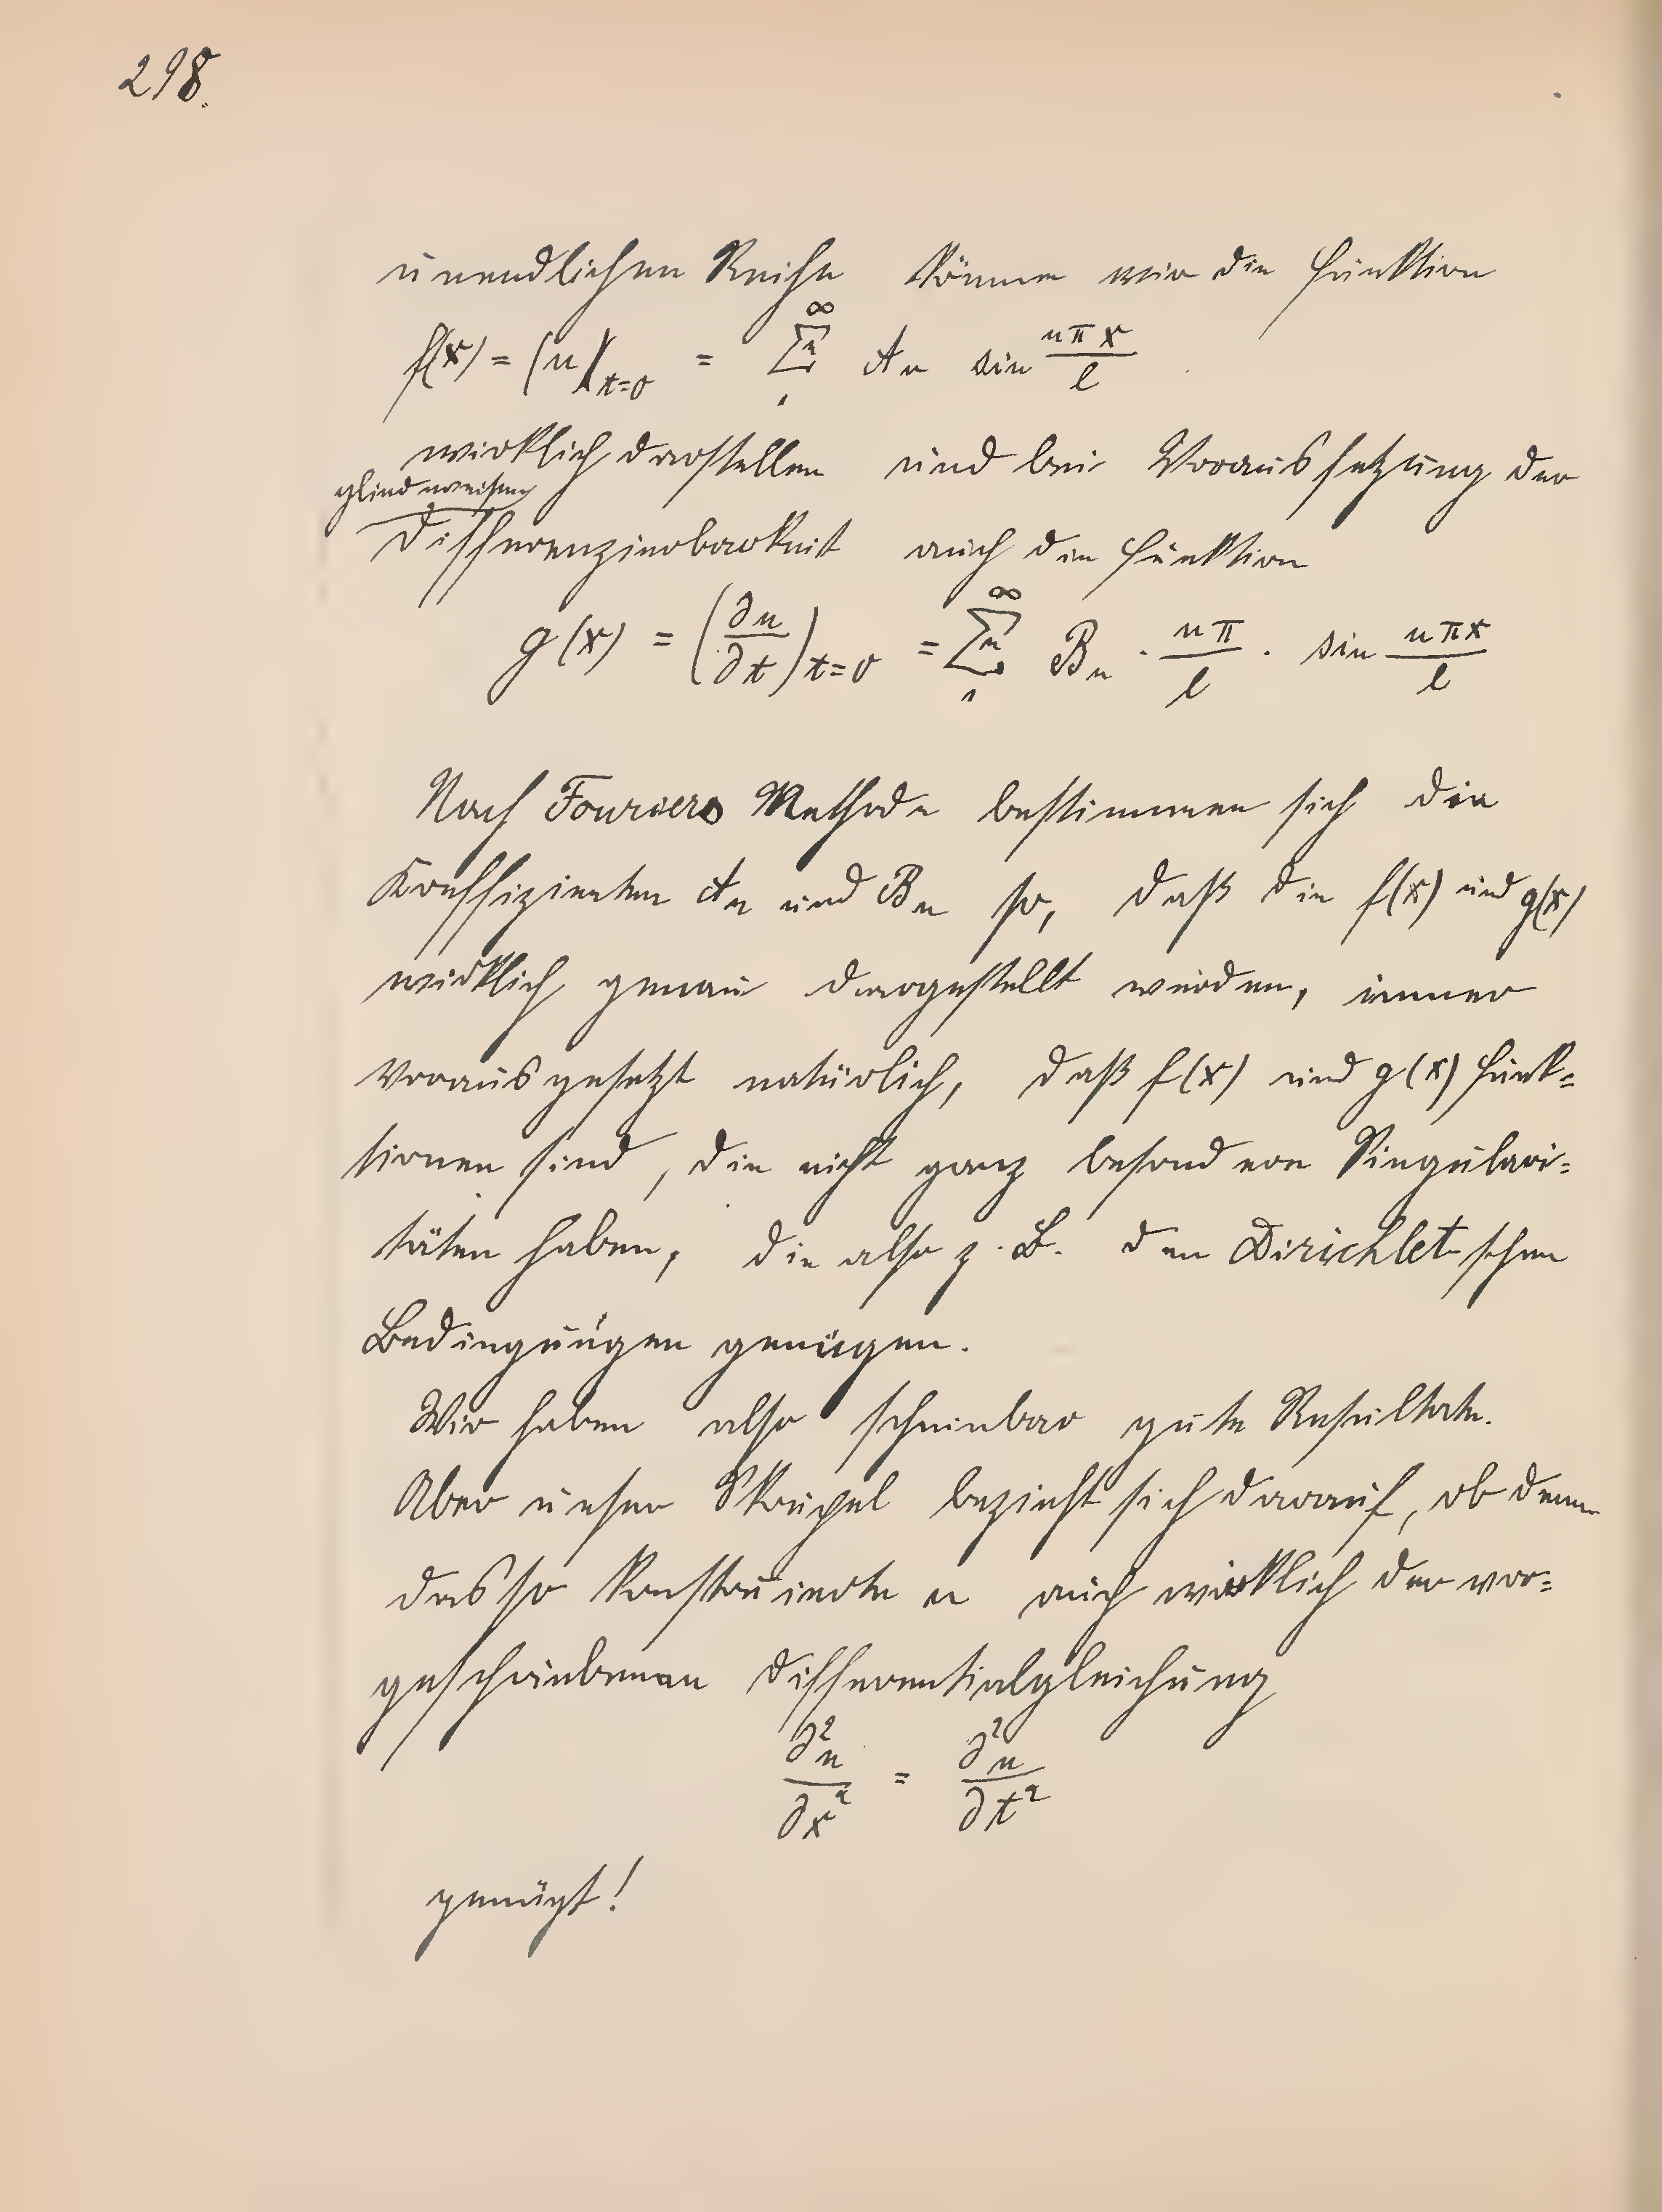 298.
unendlichen Reihe können wir die Funktion
f(x) = (u)_{t=0} = \sum_1^∞ n A_n sin \frac{nπx}{l}
wirklich darstellen und bei Voraussetzung der
gliedweisen
Differenzierbarkeit auch die Funktion
g(x) = (\frac{∂u}{∂t})_{t=0} = \sum_1^∞ n B_n · \frac{nπ}{l} · sin \frac{nπx}{l}
Nach Fouriers Methode bestimmen sich die
Koeffizienten A_n und B_n so, daß die f(x) und g(x)
wirklich genau dargestellt werden, immer
vorausgesetzt natürlich, daß f(x) und g(x) Funk=
tionen sind, die nicht ganz besondere Singulari=
täten haben, die also z. B. den Dirichlet-schen
Bedingungen genügen.
Wir haben also scheinbar gute Resultate.
Aber unser Skrupel bezieht sich darauf, ob denn
das so konstruierte u auch wirklich der vor=
geschriebenen Differentialgleichung
\frac{∂²u}{∂x²} = \frac{∂²u}{∂t²}
genügt!